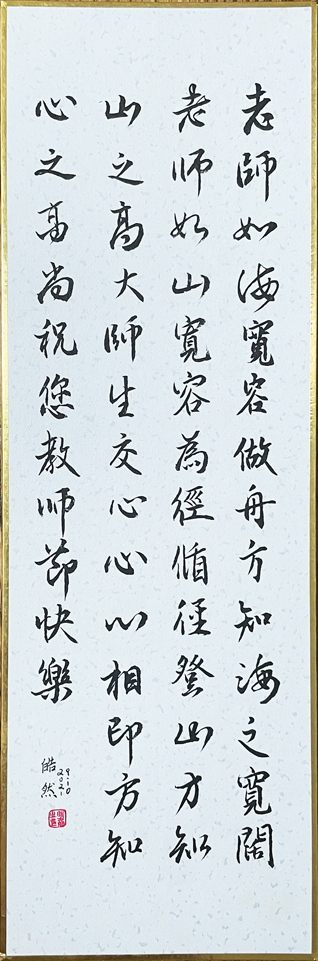 老師如海寬容做舟方知海之寬闊
老师如山寬容為徑循径登山方知
山之高大師生交心心心相印方知
心之高尚祝您教师節快樂
皓然
2021
9.10